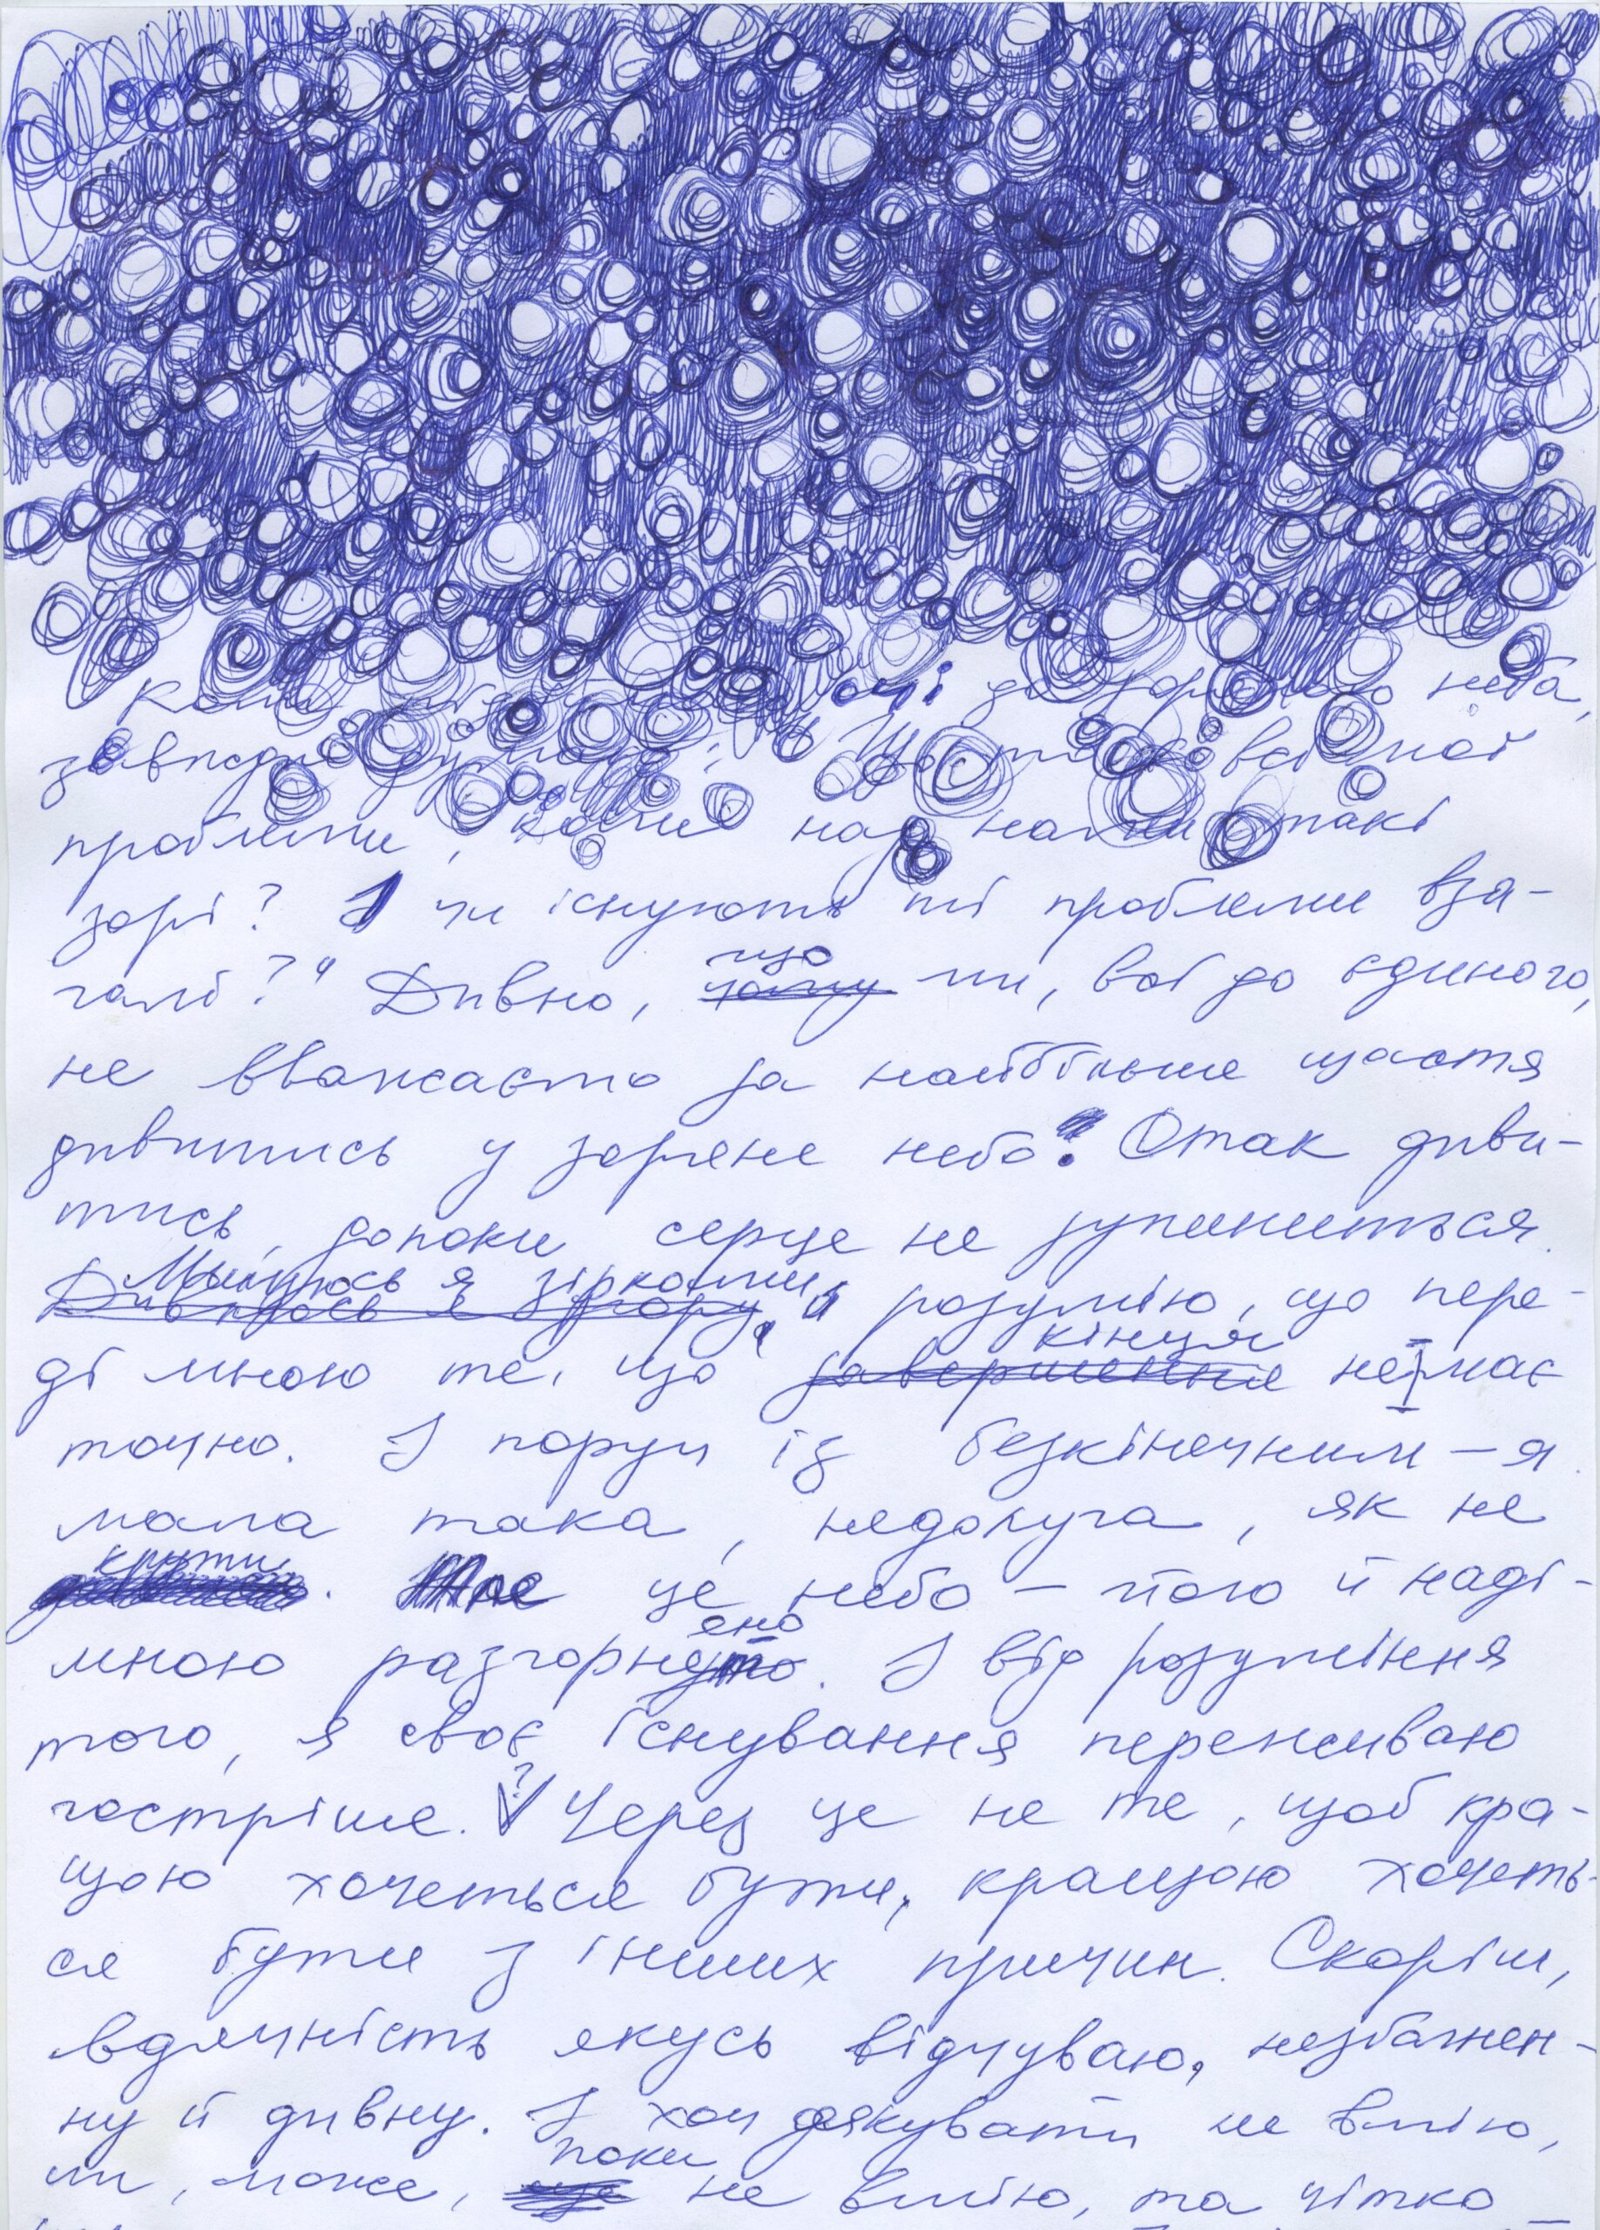 Коли очі до зоряного неба,
завжди думаю: "Що таке всі мої
проблеми, коли над нами такі
зорі? І чи існують ті проблеми вза-
галі?" Дивно, що ми, всі до єдиного,
не вважаємо за найбільше щастя
дивитись у зоряне небо! Отак диви-
тись, допоки серце не зупиниться.
Милуюсь я зірками, й розумію, що пере-
ді мною те, що кінця не має
точно. І поруч із безкінечним – я
мала така, недолуга, як не
крути. це небо – його й наді-
мною разгорнено. І від розуміння
того, я своє існування переживаю
гостріше. ? Через це не те, щоб кра-
щою хочеться бути, кращою хочеть-
ся бути з інших причин. Скоріш,
вдячність якусь відчуваю, незбагнен-
ну й дивну. І хоч дякувати не вмію,
чи, може, поки не вмію, та чітко –